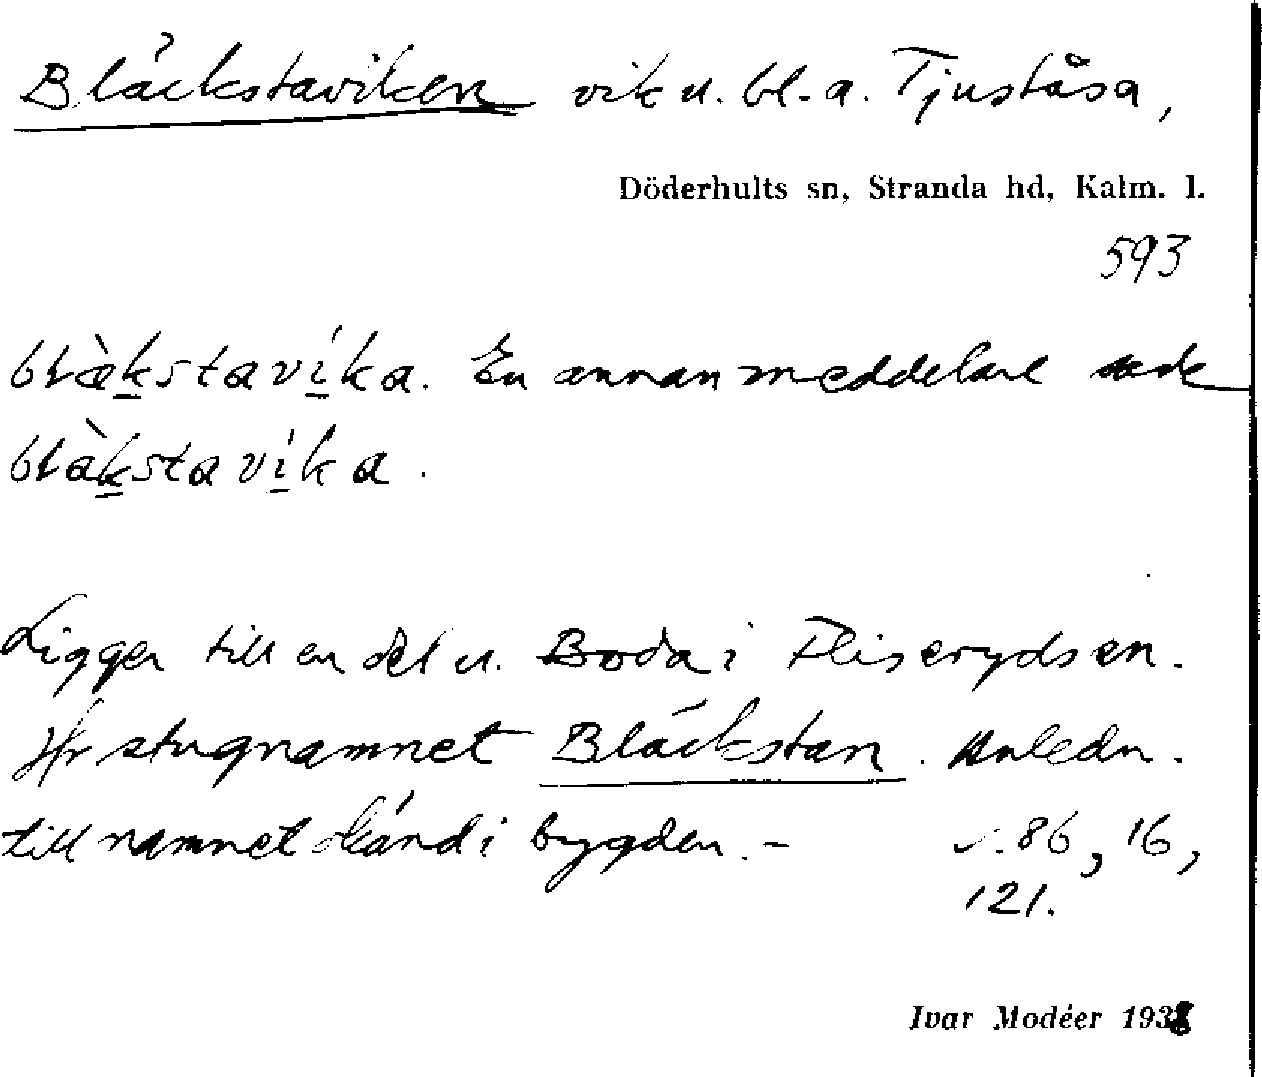 Bläckstaviken vik u. bl. a. Tjuståsa,
Döderhults sn, Stranda hd, Kalm. l.
593
blæ̀kstavíka. En annan meddelare sade
blàkstavíka.
Ligger till en del u. Boda i Fliseryds sn.
Jfr stugnamnet Bläckstan. Anledn.
till namnet okänd i bygden. - s. 86, 16,
121.
Ivar Modéer 193